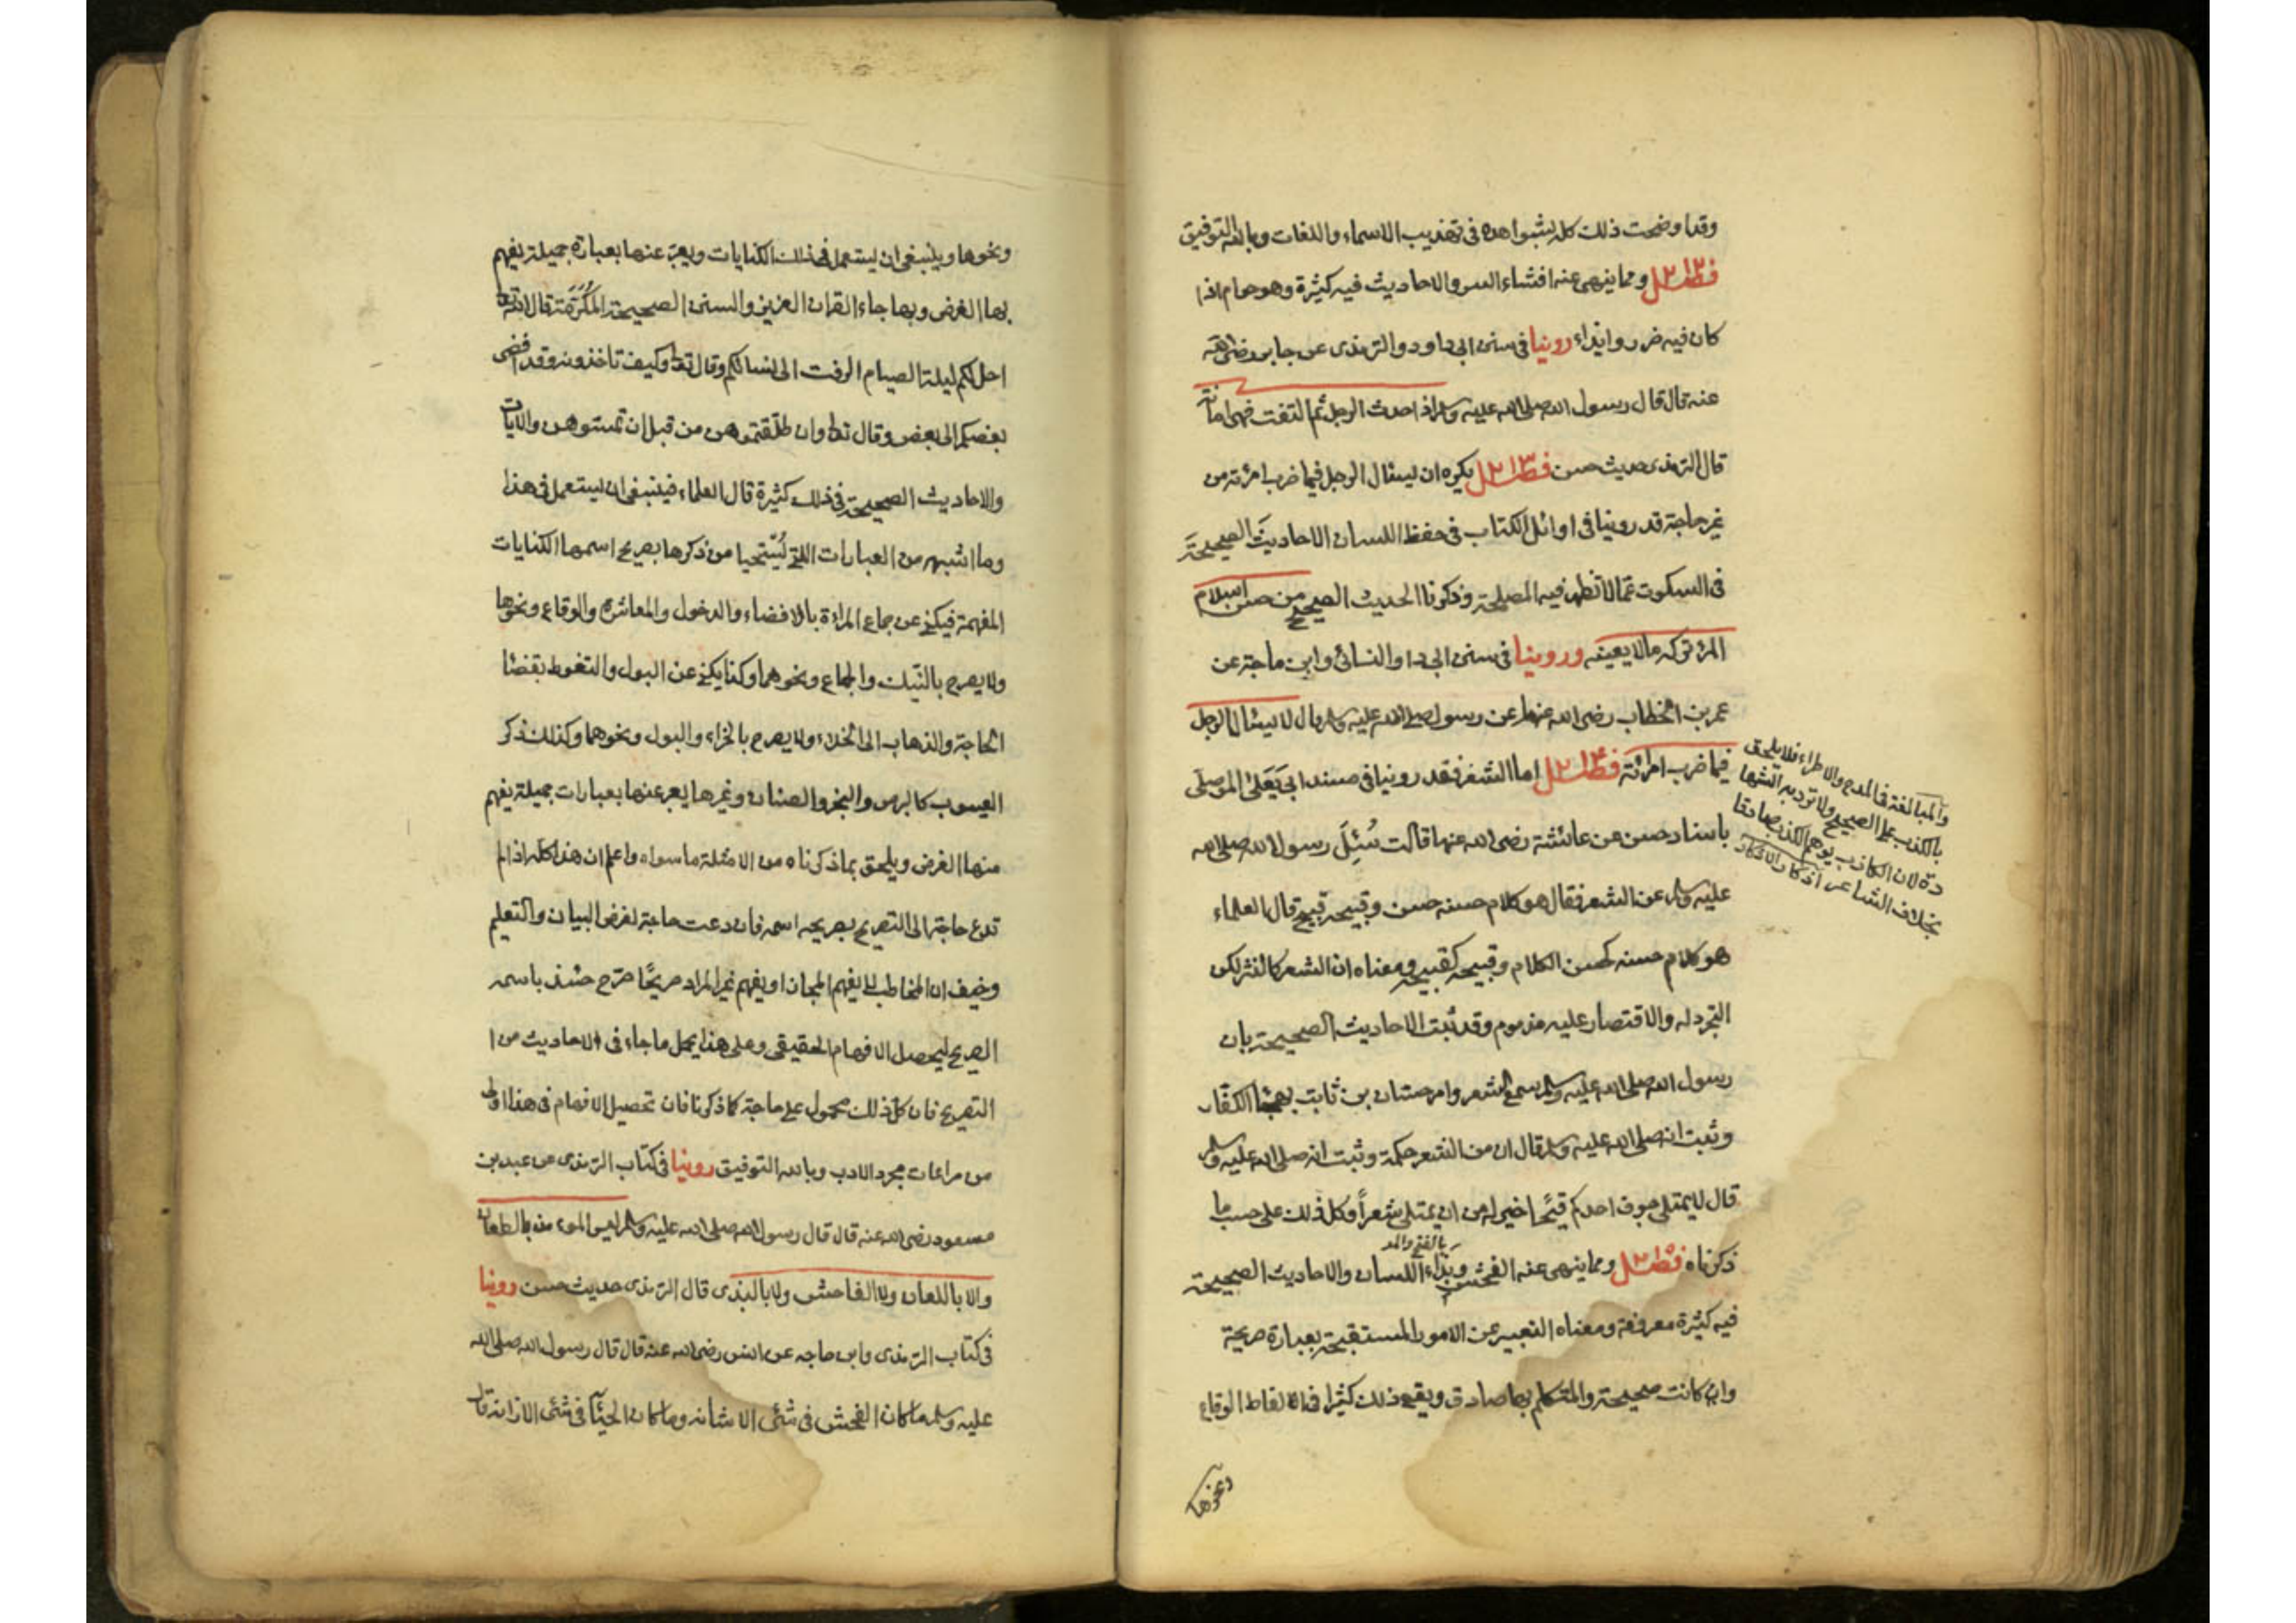 وقد اوضحت ذلك كله بشواهده فى تهذيب الاسماء واللغات وبالله التوفيق
فصل ومما ينهى عنه افشاء السر والاحاديث فيه كثيرة وهو حرام اذا
كان فيه ضرر وايذاء روينا فى سنن ابى داود والترمذى عن جابر رضى الله
عنه قال قال رسول الله صلى الله عليه وسلم اذا حدث الرجل ثم التفت فهى امانة
قال الترمذى حديث حسن فصل يكره ان يسئال الرجل فيما ضرب امرئته من
غير حاجة قد روينا فى اوائل الكتاب فى حفظ اللسان الاحاديث الصحيحة
فى السكوت عما لا تظهر فيه المصلحة وذكرنا الحديث الصحيح من حسن اسلام
المرء تركه ما لا يعينه وروينا فى سنن ابى دا والنسائى وابن ماجة عن
عمر بن الخطاب رضى الله عنهما عن رسول صلى الله عليه وسلم قال لا يسئال الرجل
فيما ضرب امرئته فصل اما الشعر فقد روينا فى مسند ابى يعلى الموصلى
باسناد حسن عن عائشة رضى الله عنها قالت سُئِلَ رسول الله صلى الله
عليه وسلم عن الشعر فقال هو كلام حسنه حسن وقبيحه قبيح قال العلماء
هو كلام حسنه كحسن الكلام وقبيحه كقبيحه ومعناه ان الشعر كالنثر لكن
التجرد له والاقتصار عليه مذموم وقد ثبت الاحاديث الصحيحة بان
رسول الله صلى الله عليه وسلم سمع الشعر وامر حسان بن ثابت بهجاء الكفار
وثبت انه صلى الله عليه وسلم قال ان من الشعر حكمة وثبت انه صلى الله عليه وسلم
قال لا يمتلى جوف احدكم قيحًا خير له من ان يمتلى شعراً وكل ذلك على حسب ما
بالفتح والمد
ذكرناه فصل ومما ينهى عنه الفحش وبذاء اللسان والاحاديث الصحيحة
فيه كثيرة معروفة ومعناه التعبير عن الامور المستقبحة بعبارة صريحة
وان كانت صحيحة والمتكلم بها صادق ويقع ذلك كثيرا فى الفاظ الوقاع
ونحوها
والمبالغة فى المدح والاطراء فلا يلحق
بالكذب على الصحيح ولا ترد به الشها
دة لان الكاذب يوهم الكذب صادقا
بخلاف الشاعر اذكار الاذكار
ونحوها وينبغى ان يستعمل فى ذلك الكنايات ويعبر عنها بعبارة جميلة يفهم
بها الغرض وبها جاء القران العزيز والسنن الصحيحة المكرمة قال الله تعا
احل لكم ليلة الصيام الرفث الى نسائكم وقال تعا وكيف تاخذونه وقد افضى
بعضكم الى بعض وقال تعا وان طلقتموهن من قبل ان تمسوهن والايات
والاحاديث الصحيحة فى ذلك كثيرة قال العلماء فينبغى ان يستعمل فى هذا
وما اشبهه من العبارات التى يُستحيا من ذكرها بصريح اسمها الكنايات
المفهمة فيكنى عن جماع المراءة بالافضاء والدخول والمعاشرة والوقاع ونحوها
ولا يصرح بالنيك والجماع ونحوهما وكذا يكنى عن البول والتغوط بقضا
الحاجة والذهاب الى الخلاء ولا يصرح بالخراء والبول ونحوهما وكذلك ذكر
العيوب كالبرص والبخر والصنان وغيرها يعبر عنها بعبارات جميلة يفهم
منها الغرض ويلحق بما ذكرناه من الامثلة ما سواه واعلم ان هذا كله اذا لم
تدع حاجة الى التصريح بصريحه اسمه فان دعت حاجة لغرض البيان والتعليم
وخيف ان المخاطب لا يفهم المجاز او يفهم غير المراد صريحًا صرح حينئذ باسمه
الصريح ليحصل الافهام الحقيقى وعلى هذا يحمل ما جاء فى الاحاديث من ا
التصريح فان كل ذلك محمول على حاجة كما ذكرنا فان تحصيل الافهام فى هذا اولى
من مراعات مجرد الادب وبالله التوفيق روينا فى كتاب الترمذى عن عبد بن
مسعود رضى الله عنه قال قال رسول الله صلى الله عليه وسلم ليس المومن بالطعان
ولا باللعان ولا الفاحش ولا بالبذى قال الترمذى حديث حسن روينا
فى كتاب الترمذى وابن ماجه عن انس رضى الله عنه قال قال رسول الله صلى الله
عليه وسلم ما كان الفحش فى شئ الا شانه وما كان الحيآ فى شئ الا زانه قال